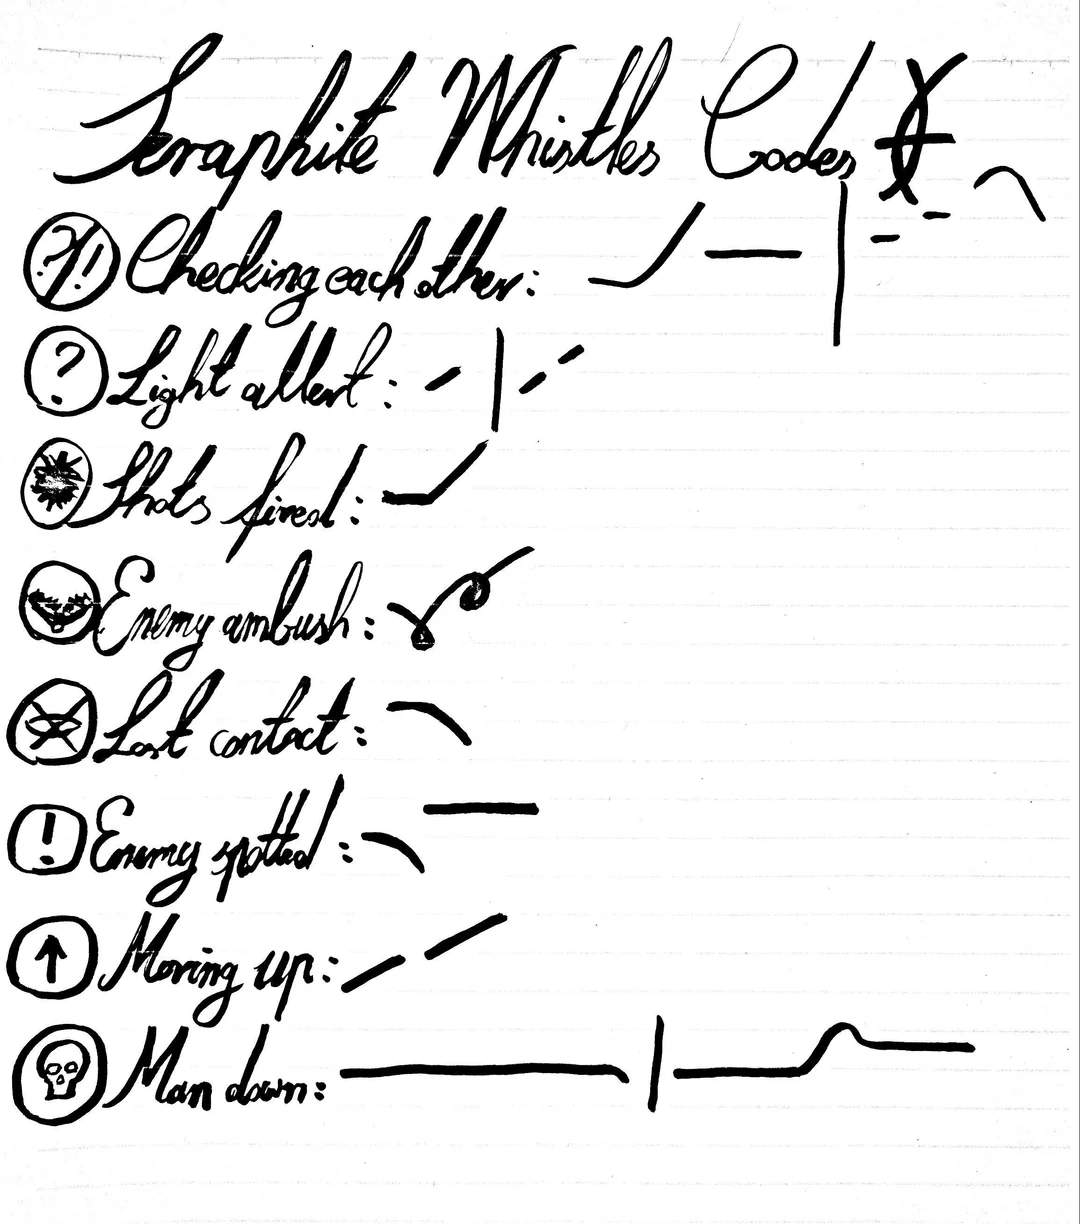 Seraphite Whistles Codes
?/! Checking each other:
? Light allert:
Shots fired:
Enemy ambush:
Lost contact:
! Enemy spotted:
Moving up:
Man down: